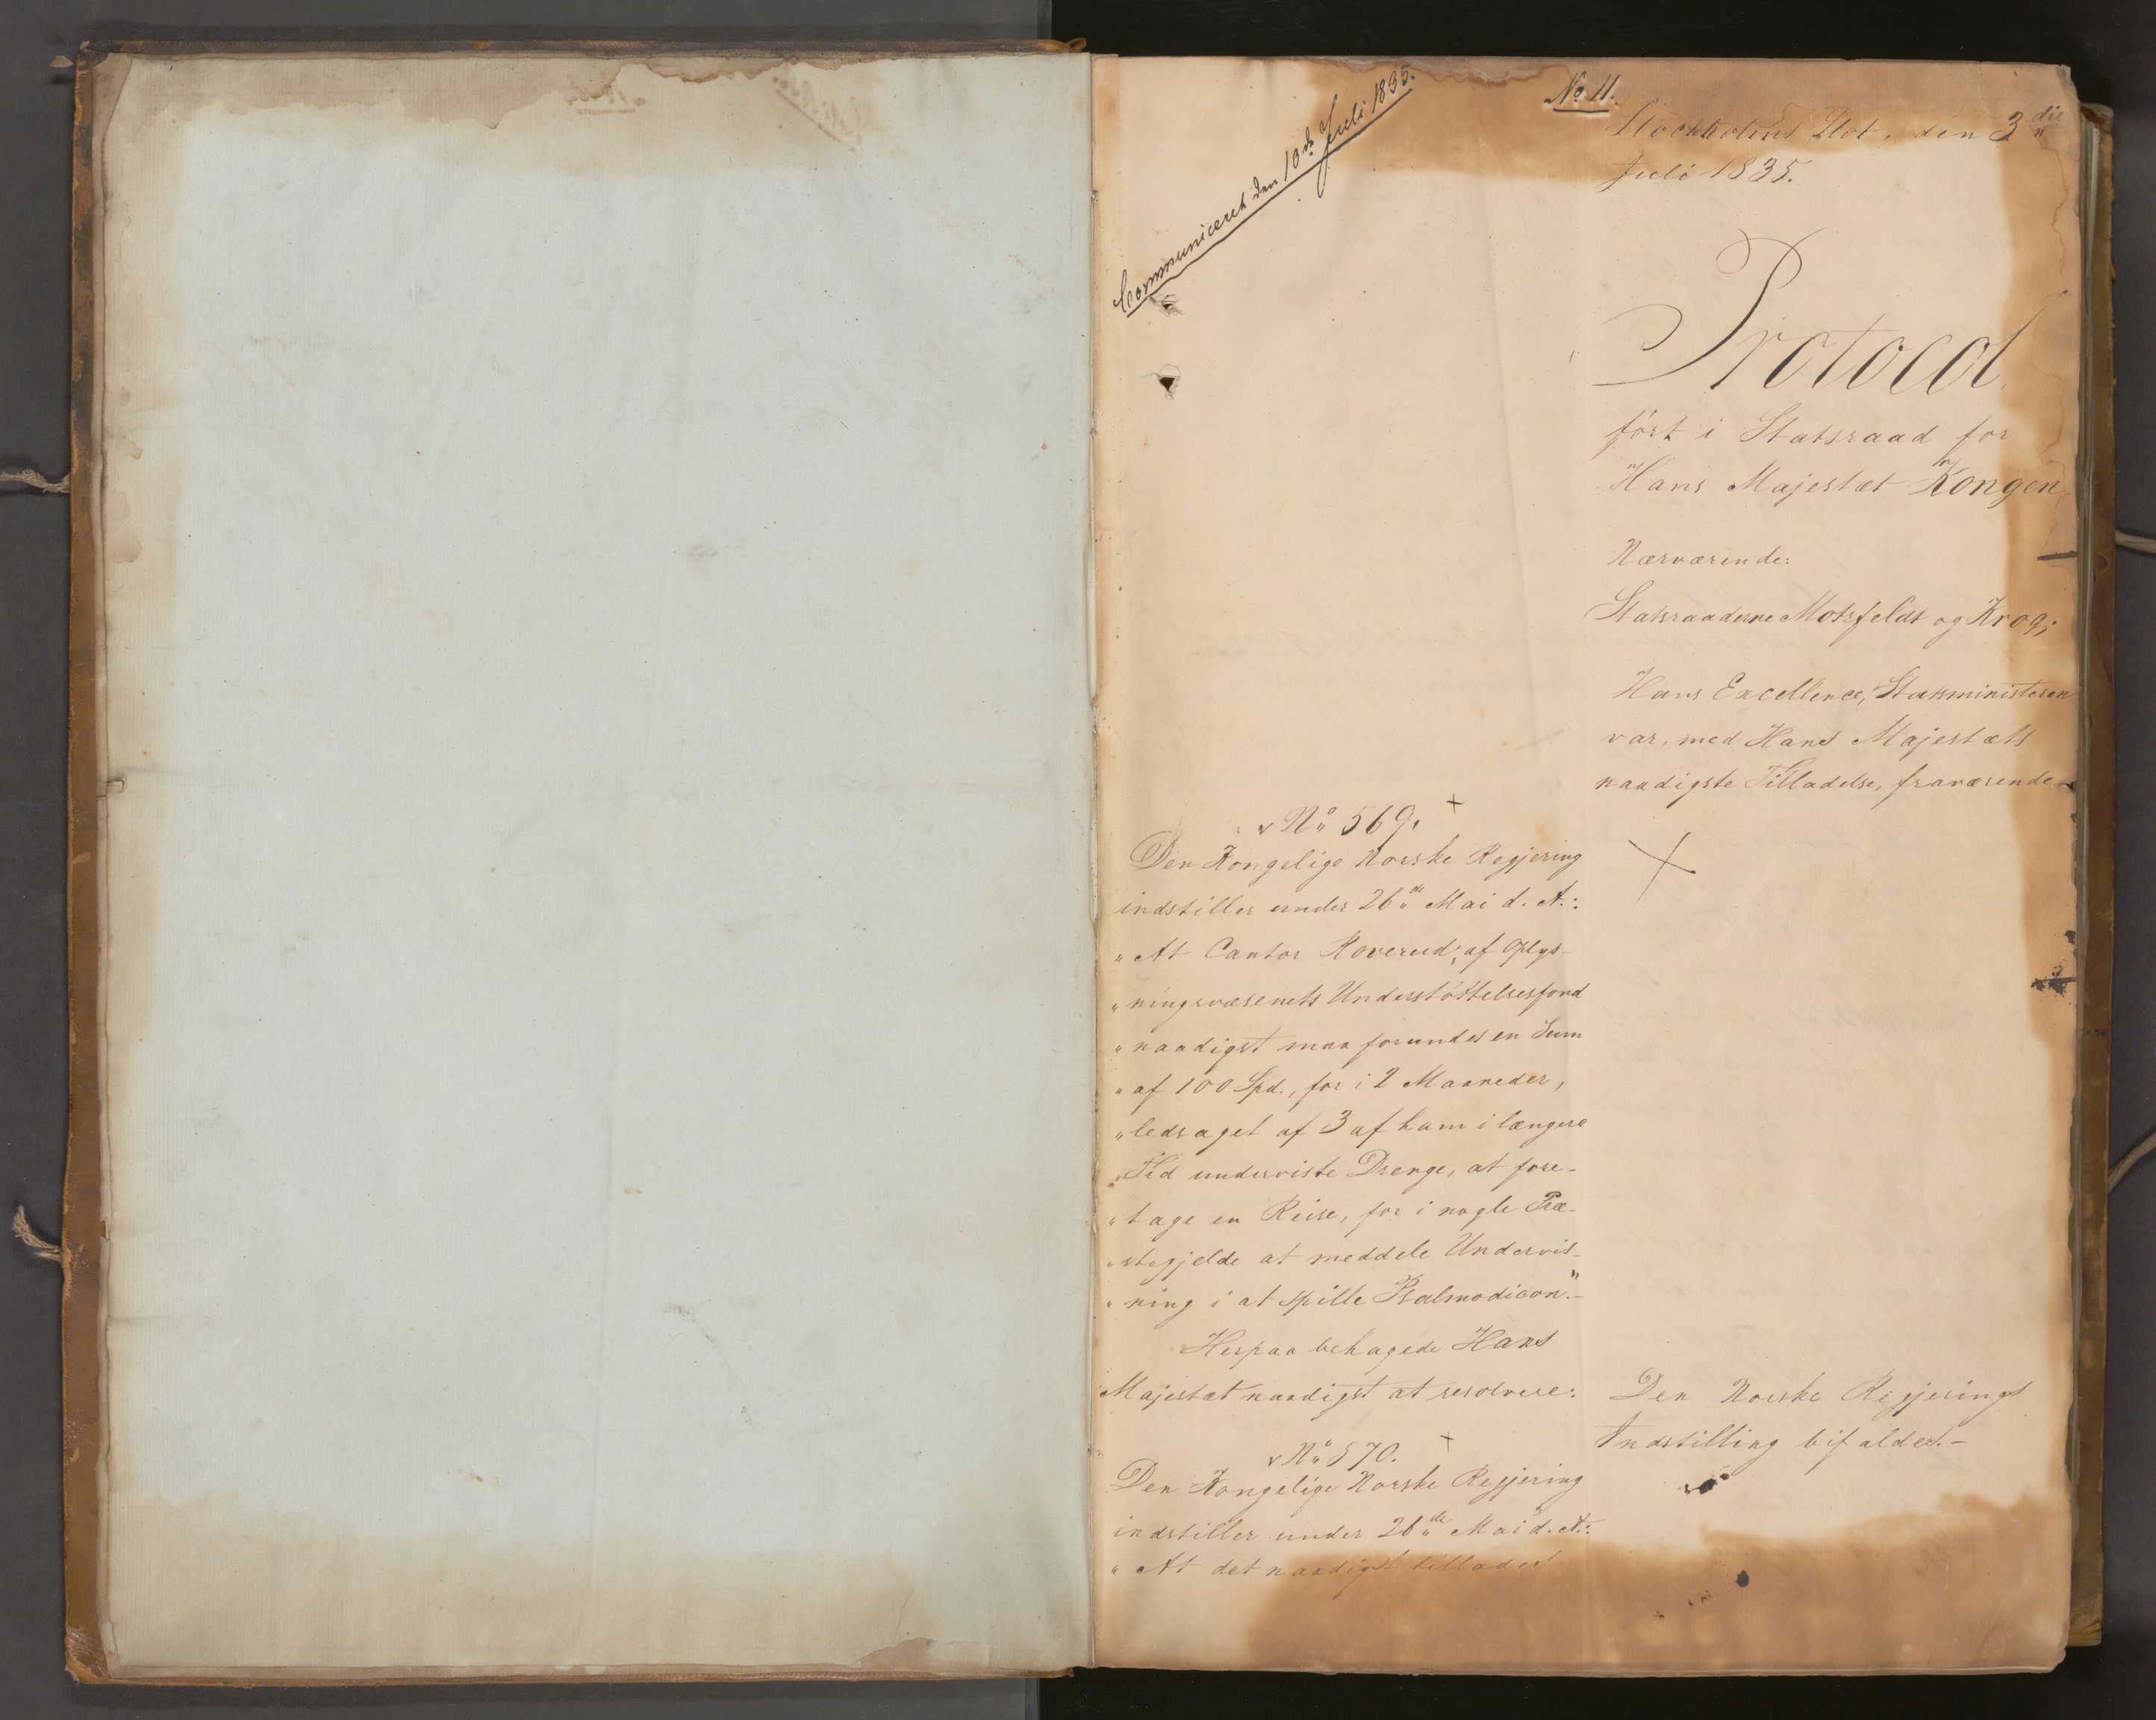 No 11.
Communiceret den 10de Juli 1835.
Stockholms Slot, den 3die
Juli 1835.
Protocol
ført i Statsraad for
Hans Majestæt Kongen
Nærværende:
Statsraaderne Motzfeldt og Krog;
Hans Excellence, Statsministeren
var, med Hans Majestæts
naadigste Tilladelse, fraværende.
No 569.
Den Kongelige Norske Regjering
indstiller under 26de Mai d. A.:
"At Cantor Roverud, af Oplys-
"ningsvæsenets Understøttelsesfond
"naadigst maa forundes en Sum
"af 100 Spd., for i 2 Maaneder,
"ledsaget af 3 af ham i længere
"Tid underviste Drenge, at fore-
"tage en Reise, for i nogle Præ-
"stegjelde at meddele Undervis-
"ning i at spille Psalmodicon."-
Herpaa behagede Hans
Majestæt naadigst at resolvere:
Den Norske Regjerings
Indstilling bifaldes.-
No 570.
Den Kongelige Norske Regjering
indstiller under 26de Mai d. A.:
"At det naadigst tillades